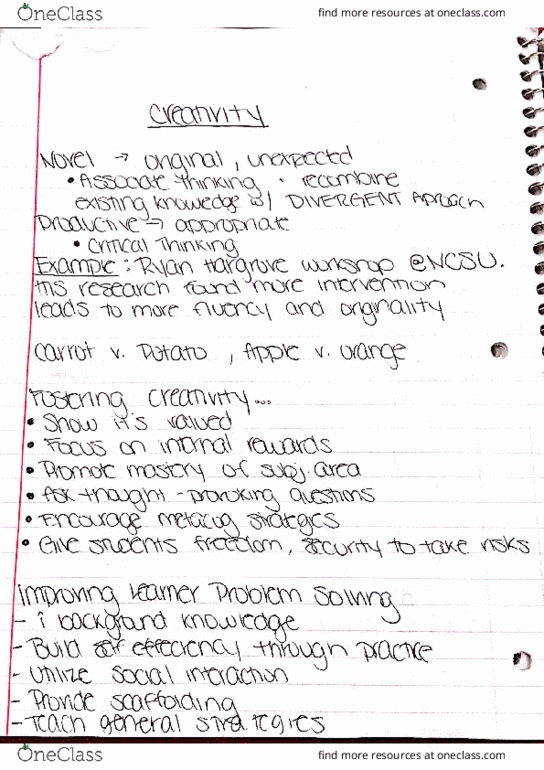 OneClass find more resources at oneclass.com
Creativity
Novel → original, unexpected
• Associate thinking · recombine
existing knowledge w/ DIVERGENT Aproach
Productive → appropriate
• Critical Thinking
Example: Ryan Hargrove workshop @NCSU.
His research found more intervention
leads to more fluency and originality
Carrot v. Potato, Apple v. orange
Fostering Creativity...
• Show it's valued
• Focus on internal rewards
• Promote mastery of subj. area
• Ask thought-provoking questions
• Encourage metacog strategies
• Give students freedom, security to take risks
Improving Learner Problem Solving
- ↑ background knowledge
- Build efficiency through practice
- Utilize social interaction
- Provide scaffolding
- Teach general strategies
OneClass find more resources at oneclass.com